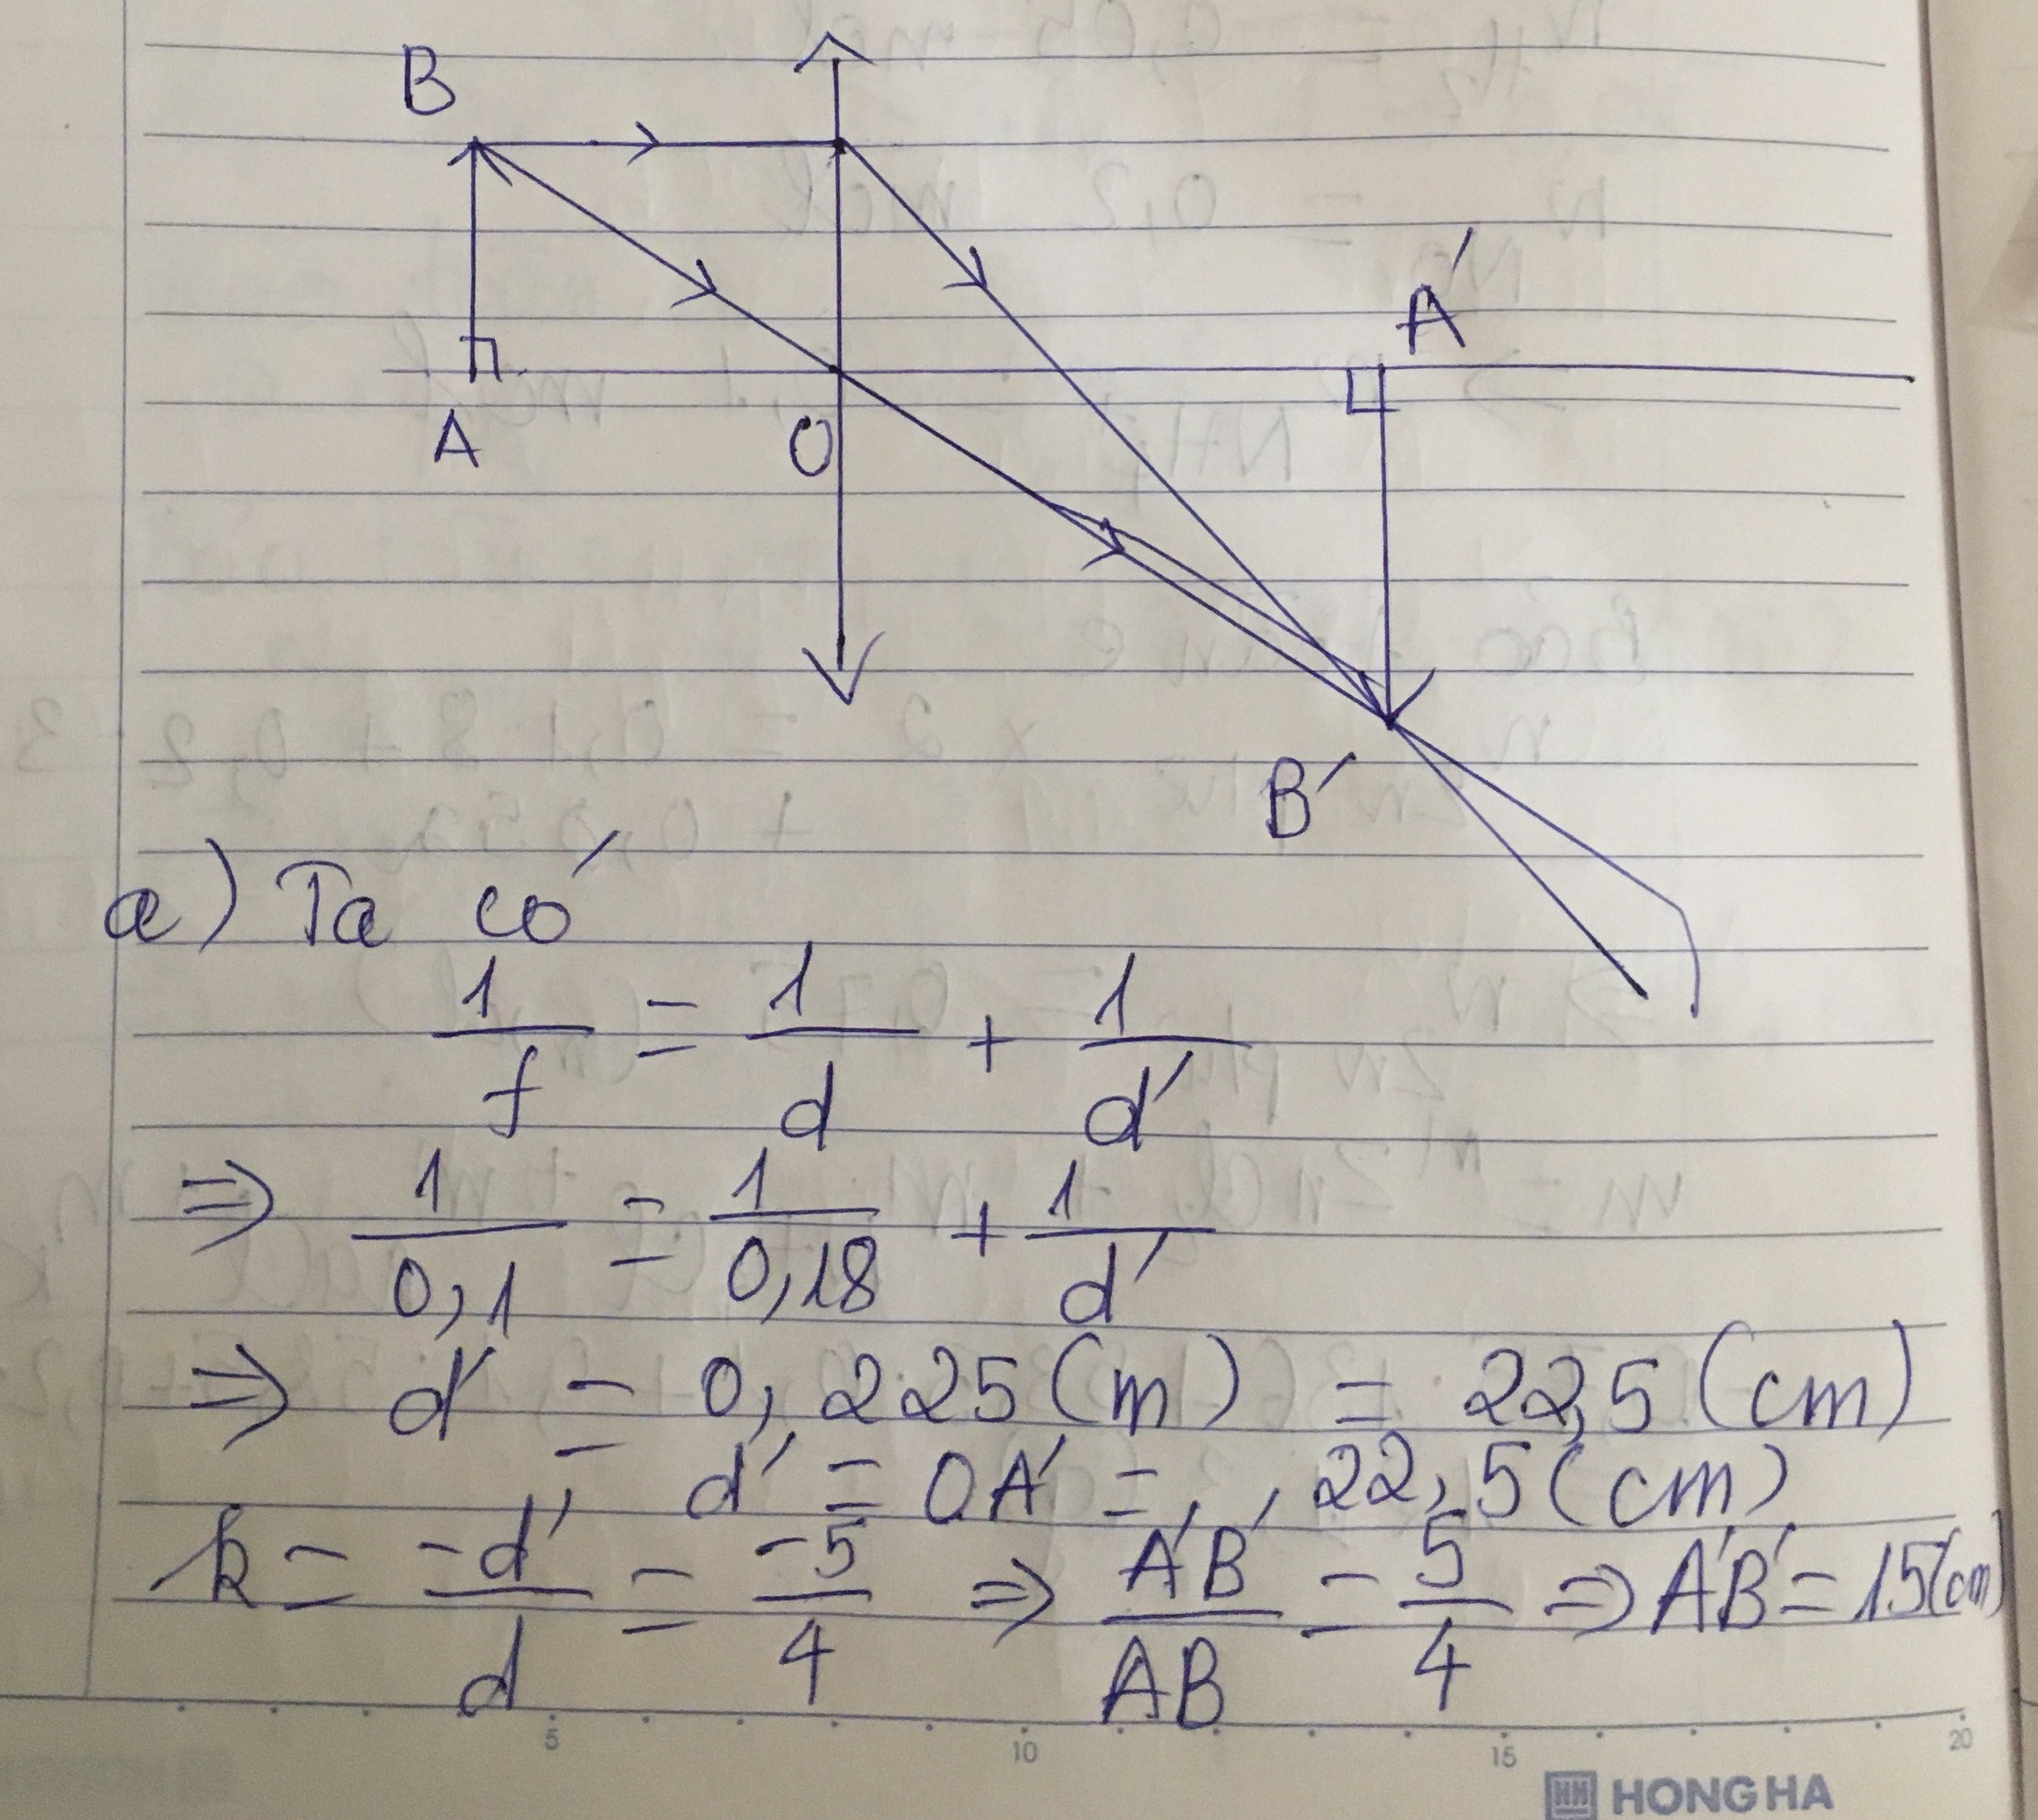 B
A'
A
O
B'
a) Ta có
1/f = 1/d + 1/d'
=> 1/0,1 = 1/0,18 + 1/d'
=> d' = 0,225 (m) = 22,5 (cm)
d' = OA' = 22,5 (cm)
k = -d'/d = -5/4 => A'B'/AB = 5/4 => A'B' = 15(cm)
5 10 15 20
HH HONG HA